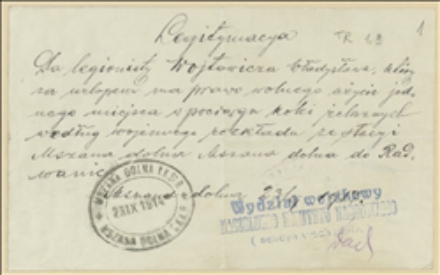 Legitymacya
TR 43
1
Dla legionisty Wojtowicza Władysława, który
za urlopem ma prawo wolnego użycia jed-
nego miejsca w pociągu kolei żelaznych
według wojennego rozkładu ze stacyi
Mszana dolna Mszana dolna do Rad-
Mszana dolna 23/9
MSZANA DOLNA
2 3 IX 1914
MSZANA DOLNA
Wydział wojskowy
NACZELNEGO KOMITETU NARODOWEGO